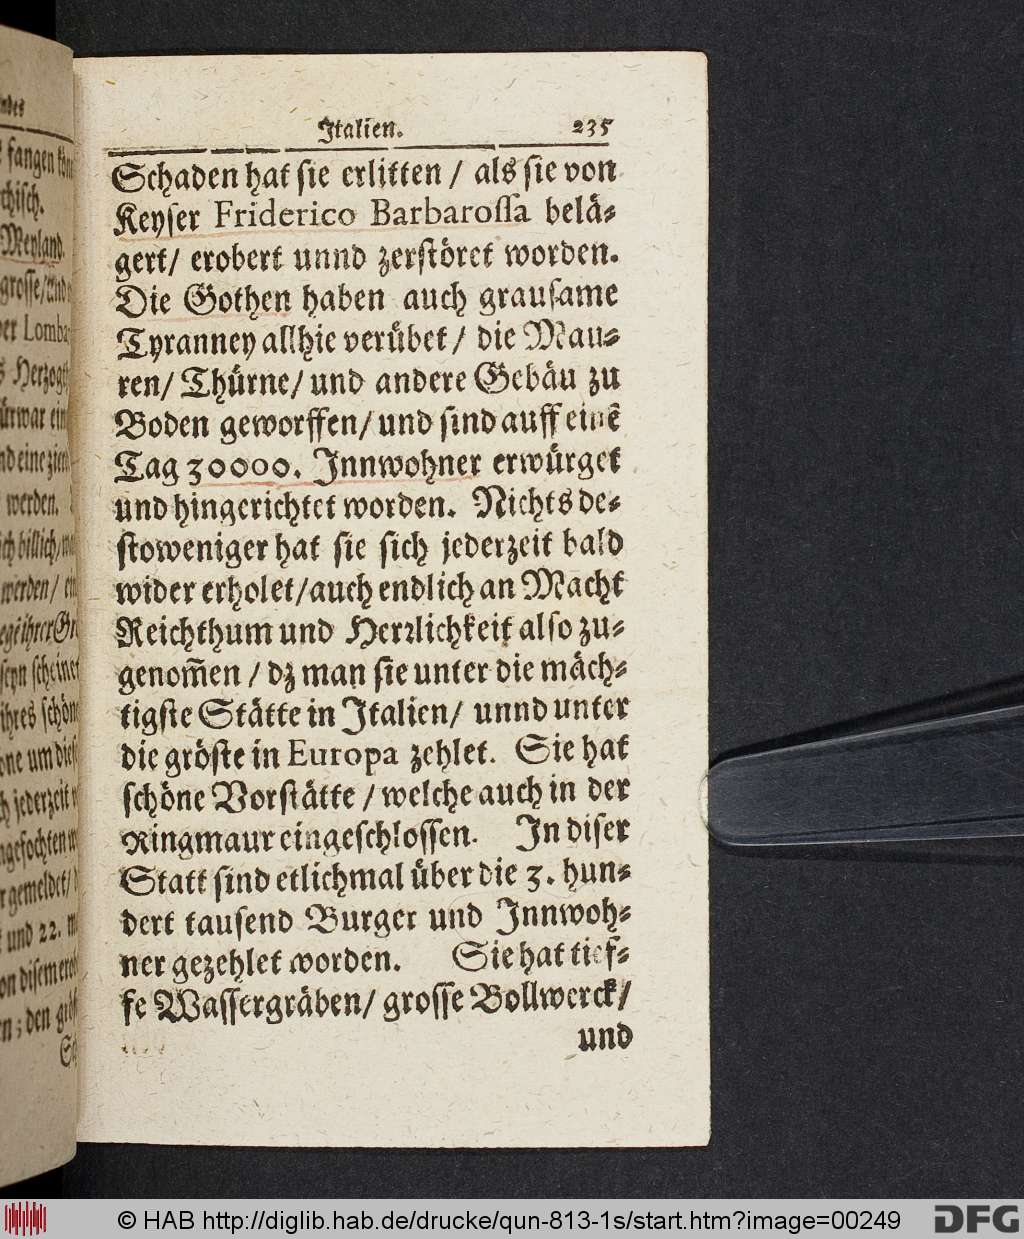 Italien. 235
Schaden hat sie erlitten / als sie von
Keyser Friderico Barbarossa belä⸗
gert/ erobert unnd zerstöret worden.
Die Gothen haben auch grausame
Tyranney allhie verübet / die Mau⸗
ren/ Thürne/ und andere Gebäu zu
Boden geworffen/ und sind auff einẽ
Tag 30000. Innwohner erwürget
und hingerichtet worden. Nichts de⸗
stoweniger hat sie sich jederzeit bald
wider erholet/ auch endlich an Macht
Reichthum und Herrlichkeit also zu⸗
genom̃en / dz man sie unter die mäch⸗
tigste Stätte in Italien/ unnd unter
die gröste in Europa zehlet. Sie hat
schöne Vorstätte / welche auch in der
Ringmaur eingeschlossen. In diser
Statt sind etlichmal über die 3. hun⸗
dert tausend Burger und Innwoh⸗
ner gezehlet worden. Sie hat tief⸗
fe Wassergräben/ grosse Bollwerck/
und
fangen
Meyland.
grosse/ Und
Lomba
werden.
billich/
werden/
scheinet
ihres schön
um dies
jederzeit
gefochten
gemeldet/
und 22.
von disem
den
© HAB http://diglib.hab.de/drucke/qun-813-1s/start.htm?image=00249
DFG